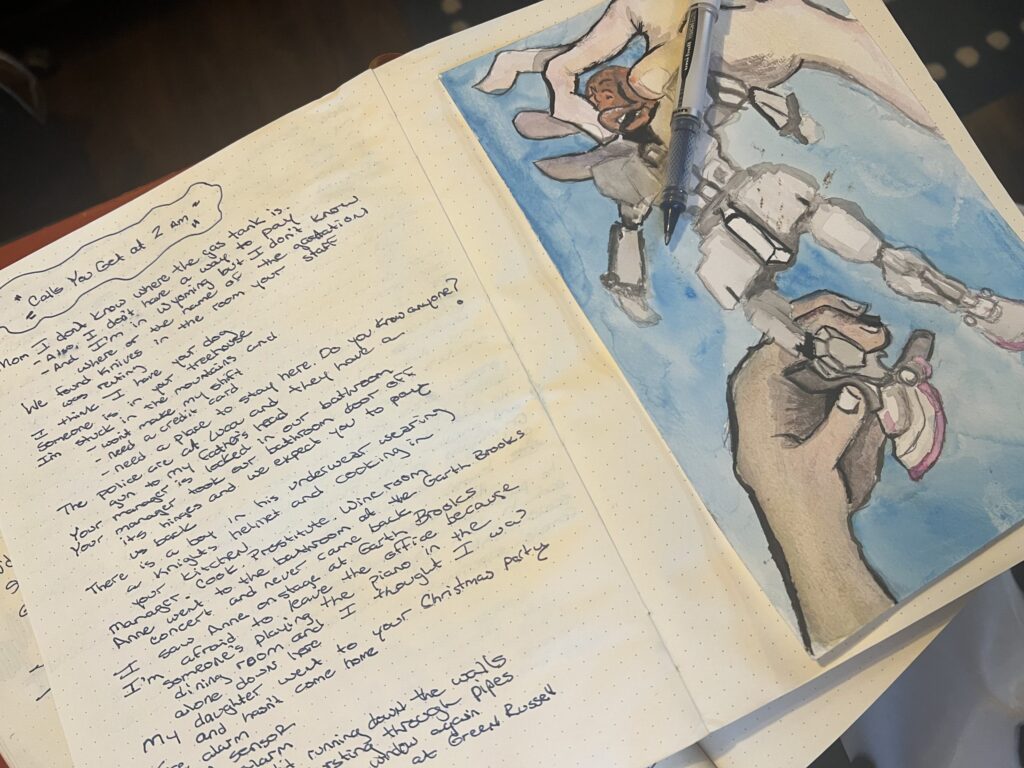 "Calls You Get at 2 am"
Mom I don't know where the gas tank is.
- Also, I don't have a way to pay
- And I'm in Wyoming but I don't know
where or the name of the gastation
We found knives in the room your staff
was renting
I think I have your dog
Someone is in your treehouse
I'm stuck in the mountains and
- wont make my shift
- need a credit card
- need a place to stay here. Do you know anyone?
The police are at Luca and they have a
gun to my father's head
Your manager is locked in our bathroom
Your manager took our bathroom door off
its hinges and we expect you to pay
us back
There is a boy in his underwear wearing
a Knights helmet and cooking in
your kitchen
manager. Cook. Prostitute. Wine room
Anne went to the bathroom at the Garth Brooks
concert and never came back
I saw Anne onstage at Garth Brooks
I'm afraid to leave the office because
someone's playing the piano in the
dining room and I thought I was
alone down here
My daughter went to your Christmas party
and hasn't come home
alarm
sensor
alarm
running down the walls
through pipes
window again
at Green Russell